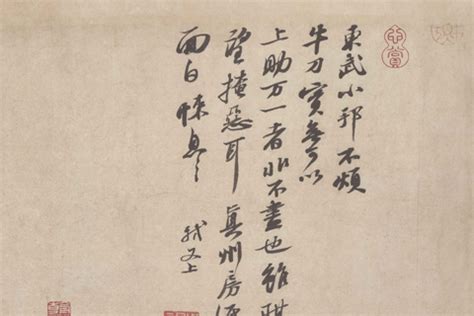 東武小邦不煩
牛刀實無可以
上助万一者非不盡也雖
望掩惡耳真州房
面白悚息々
軾又上